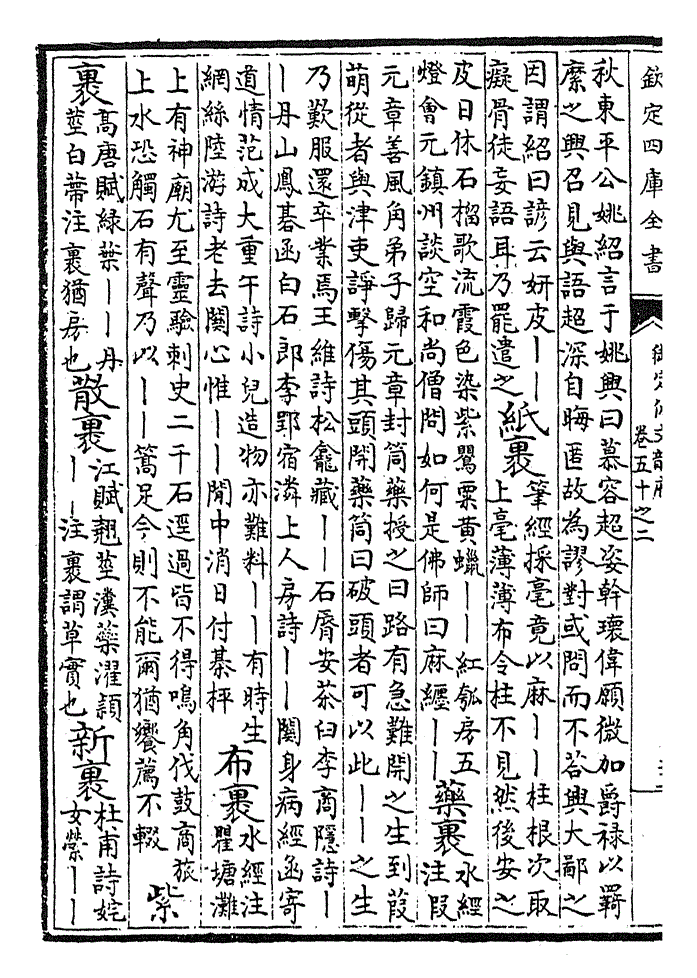 欽定四庫全書
御定佩文韻府
卷五十之二
秋東平公姚紹言于姚興曰慕容超姿幹瓌偉願微加爵禄以羇
縻之興召見與語超深自晦匿故為謬對或問而不荅興大鄙之
因謂紹曰諺云妍皮丨丨
癡骨徒妄語耳乃罷遣之
紙裹
筆經採毫竟以麻丨丨柱根次取
上毫薄薄布令柱不見然後安之
皮日休石榴歌流霞色染紫罌粟黄蠟丨丨紅瓠房五
燈會元鎮州談空和尚僧問如何是佛師曰麻纒丨丨
藥裹
水經
注叚
元章善風角弟子歸元章封筒藥授之曰路有急難開之生到葭
萌從者與津吏諍擊傷其頭開藥筒曰破頭者可以此丨丨之生
乃歎服還卒業焉王維詩松龕藏丨丨石脣安茶臼李商隱詩丨
丨丹山鳳碁函白石郎李郢宿潾上人房詩丨丨關身病經函寄
道情范成大重午詩小兒造物亦難料丨丨有時生
網絲陸游詩老去關心惟丨丨閒中消日付棊枰
布裹
水經注
瞿塘灘
上有神廟尤至靈驗刺史二千石逕過皆不得鳴角伐鼓商旅
上水恐觸石有聲乃以丨丨篙足今則不能爾猶饗薦不輟
紫
裹
高唐賦緑葉丨丨丹
莖白蔕注裹猶房也
散裹
江賦翹莖瀵蘂濯頴
丨丨注裹謂草實也
新裹
杜甫詩姹
女縈丨丨